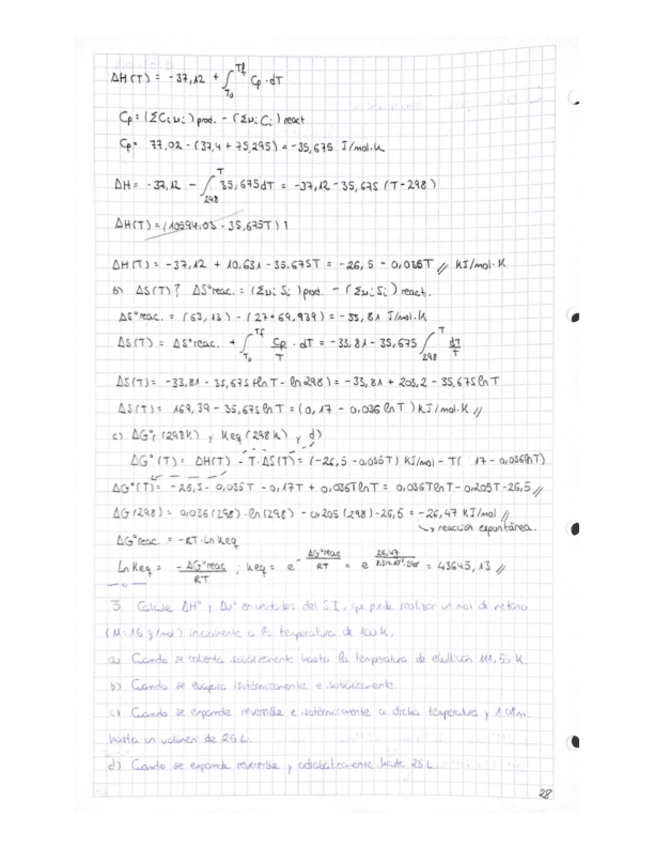 ΔH(T) = -37,12 + ∫_{T₀}^{Tf} Cp·dT
Cp = (ΣCᵢνᵢ)prod. - (ΣνᵢCᵢ)react
Cp = 77,02 - (37,4 + 75,295) = -35,675 J/mol·K
ΔH = -37,12 - ∫_{298}^{T} 35,675dT = -37,12 - 35,675 (T-298)
ΔH(T) = (10594,03 - 35,675T)
ΔH(T) = -37,12 + 10,631 - 35,675T = -26,5 - 0,036T // KJ/mol·K
b) ΔS(T)? ΔS°reac. = (ΣνᵢSᵢ)prod - (ΣνᵢSᵢ)react.
ΔS°reac. = (63,13) - (27+69,939) = -33,81 J/mol·K
ΔS(T) = ΔS°reac. + ∫_{T₀}^{Tf} Cp/T · dT = -33,81 - 35,675 ∫_{298}^{T} dT/T
ΔS(T) = -33,81 - 35,675 (lnT - ln298) = -33,81 + 203,2 - 35,675lnT
ΔS(T) = 169,39 - 35,675lnT = (0,17 - 0,036 lnT) KJ/mol·K //
c) ΔG°r (298K) y Keq (298K) y d)
ΔG°(T) = ΔH(T) - T·ΔS(T) = (-26,5 - 0,035T) KJ/mol - T( 17 - 0,036lnT)
ΔG°(T) = -26,5 - 0,035T - 0,17T + 0,036TlnT = 0,036TlnT - 0,205T - 26,5 //
ΔG(298) = 0,036(298)·ln(298) - 0,205(298) - 26,5 = -26,47 KJ/mol //
↳ reacción espontánea.
ΔG°reac. = -RT·Ln Keq
Ln Keq = - ΔG°reac/RT ; Keq = e^{- ΔG°reac/RT} = e = 43645,13 //
3. Calcule ΔH° y ΔU° en unidades del S.I, que puede realizar un mol de metano
(M=16 g/mol) inicialmente a la temperatura de 100 K.
a) Cuando se calienta isobáricamente hasta la temperatura de ebullición 111,50 K
b) Cuando se evapora isotérmicamente e isobáricamente
c) Cuando se expande reversible e isotérmicamente a dicha temperatura y 1 atm.
hasta un volumen de 25 L.
d) Cuando se expande reversible y adiabáticamente, hasta 25 L.
28